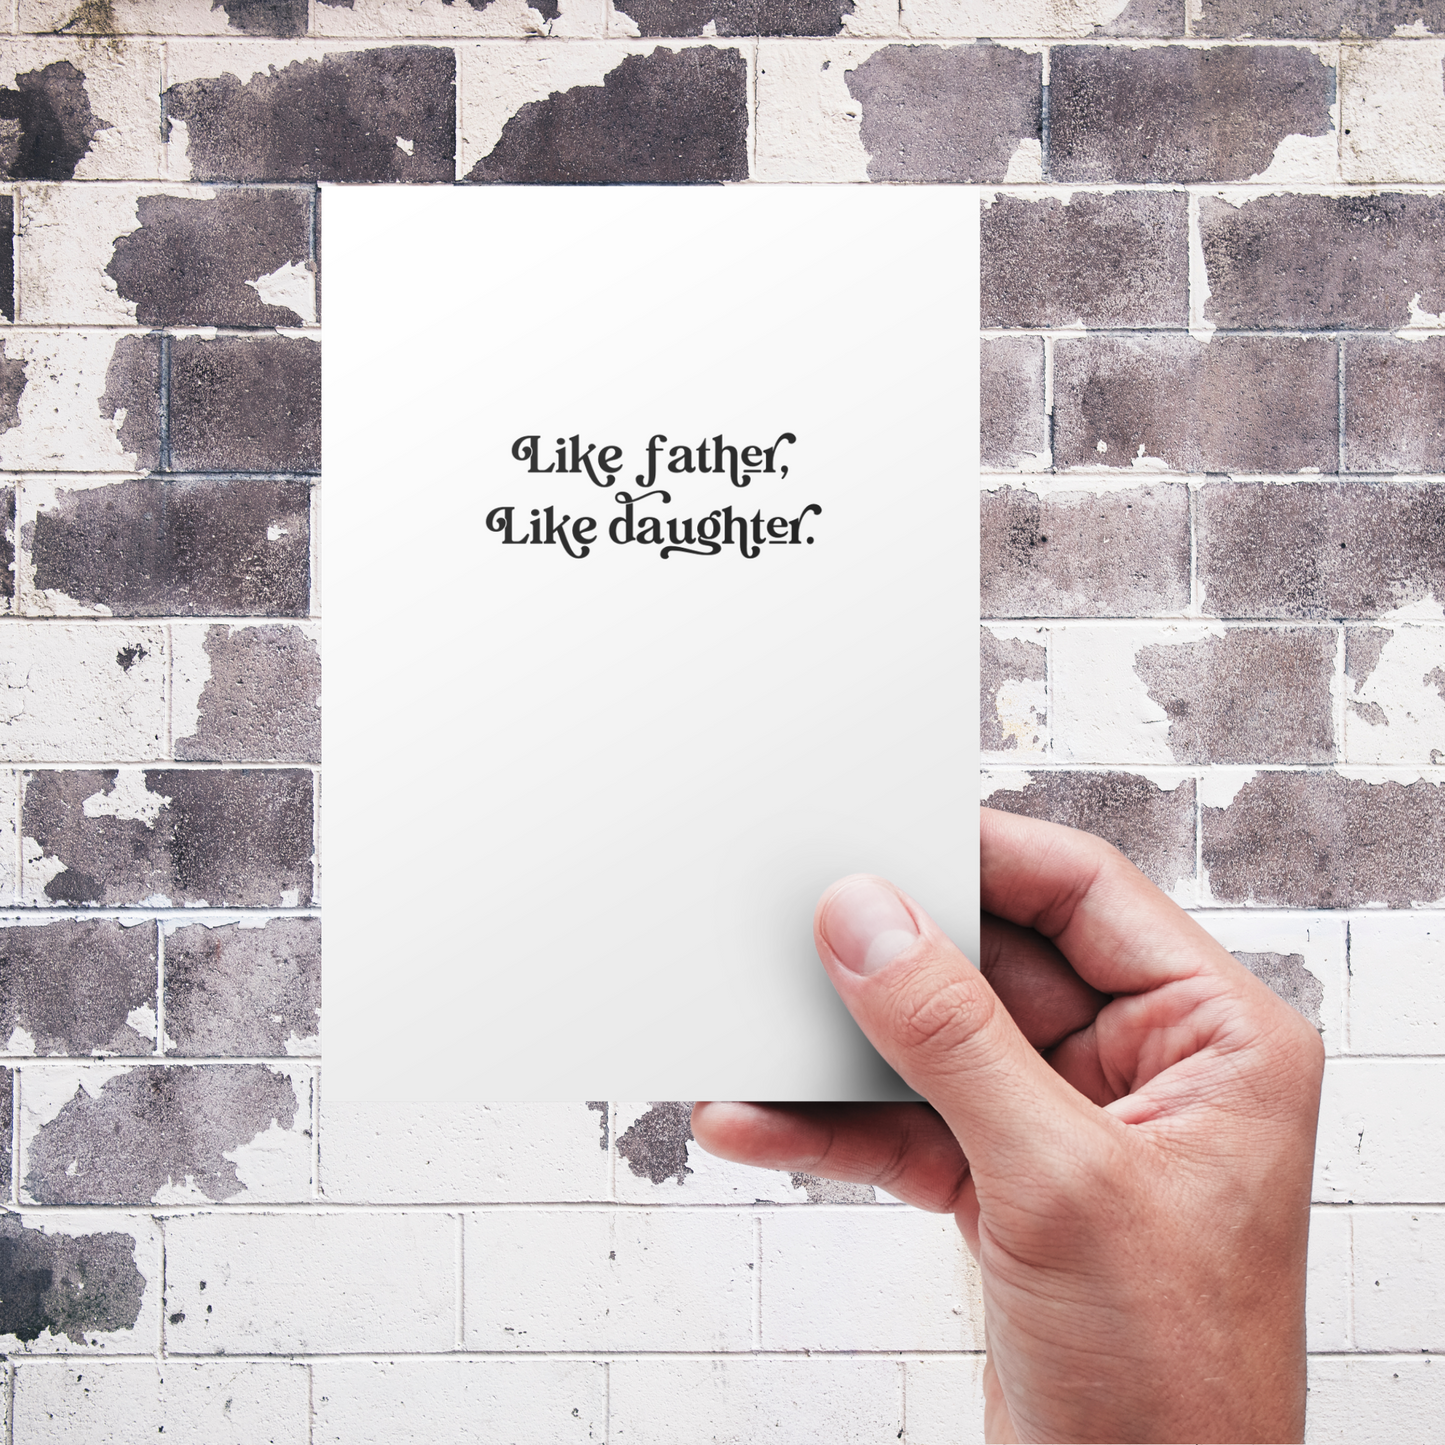 Like father,
Like daughter.